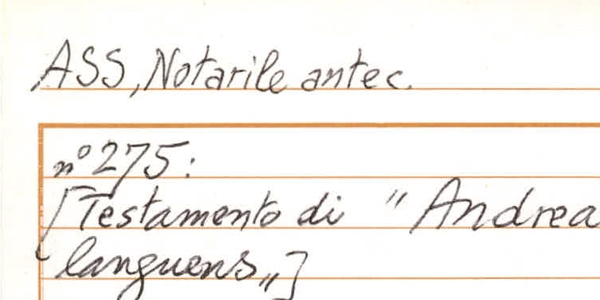 ASS, Notarile antec.
n° 275:
[Testamento di " Andrea
languens„]